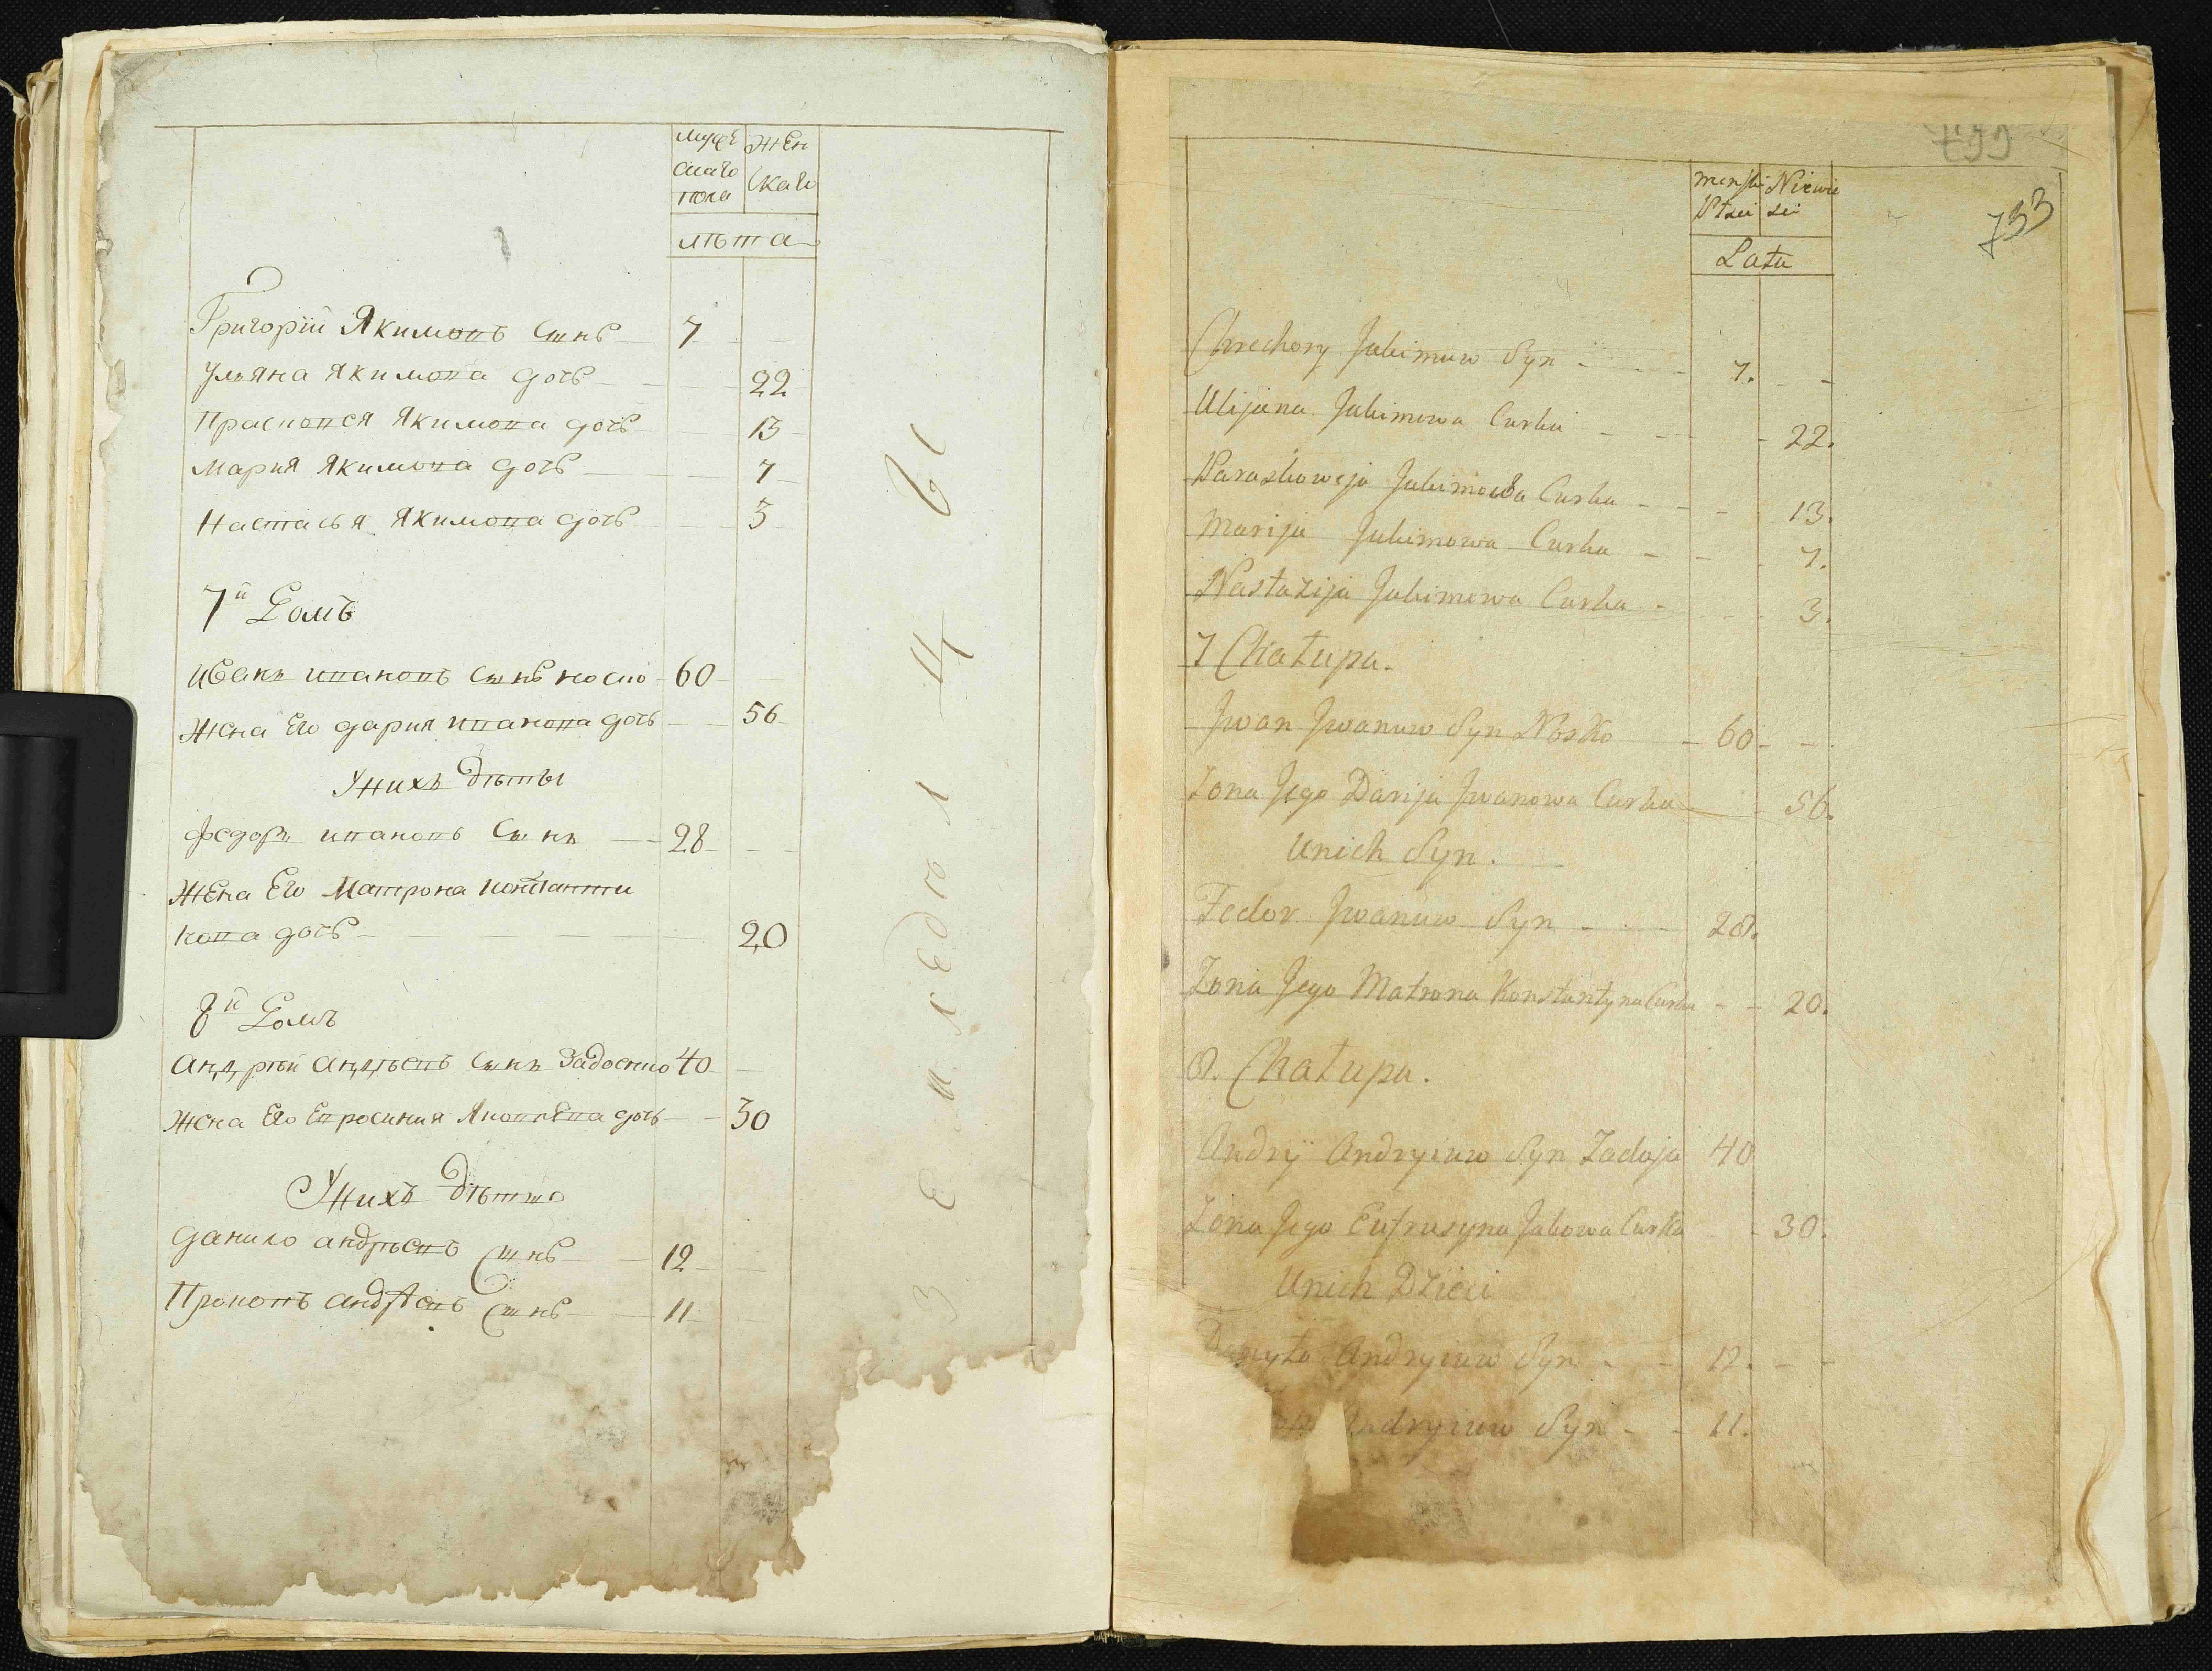 мужескаго пола
Женскаго
лѣта
Григорій Якимовъ Сынъ 7
Ульяна Якимова дочь 22
Прасковся Якимова дочь 13
Мария Якимова дочь 7
Настасья Якимова дочь 3
7й Домъ
Иванъ ивановъ Сынъ носко 60
Жена Его дария ивановa дочь 56
У нихъ дѣты
федоръ ивановъ Сынъ 28
Жена Его Матрона константи
нова дочь 20
8й Домъ
Андрѣй андрѣевъ Сынъ 40
Жена Его Евросиния дочь 30
У нихъ дѣты
данило андрѣевъ Сынъ 12
Прокопъ андрѣевъ Сынъ 11
733
733
menski Niewie
Płsei sci
Lata
Chrechory Jakimuw Syn - 7. - -
Ulijana Jakimowa Curka - - - 22.
Paraskoweja Jakimowa Curka - - - 13.
Marija Jakimowa Curka - - - 7.
Nastazija Jakimowa Curka - - - 3.
7 Chałupa.
Jwan Jwanuw Syn Nosko - 60 - -
Zona Jego Darija Jwanowa Curka - 56.
Unich Syn.
Fedor Jwanuw Syn - - 28.
Zona Jego Matrona Konstantyna Curka - - 20.
8. Chałupa.
Andrÿ Andryiuw Syn Zadoja 40
Zona Jego Eufrusyna Jakowa Curka - 30.
Unich Dzieci
Danyło Andryiuw Syn - - 12. - -
Andryiuw Syn - - 11.